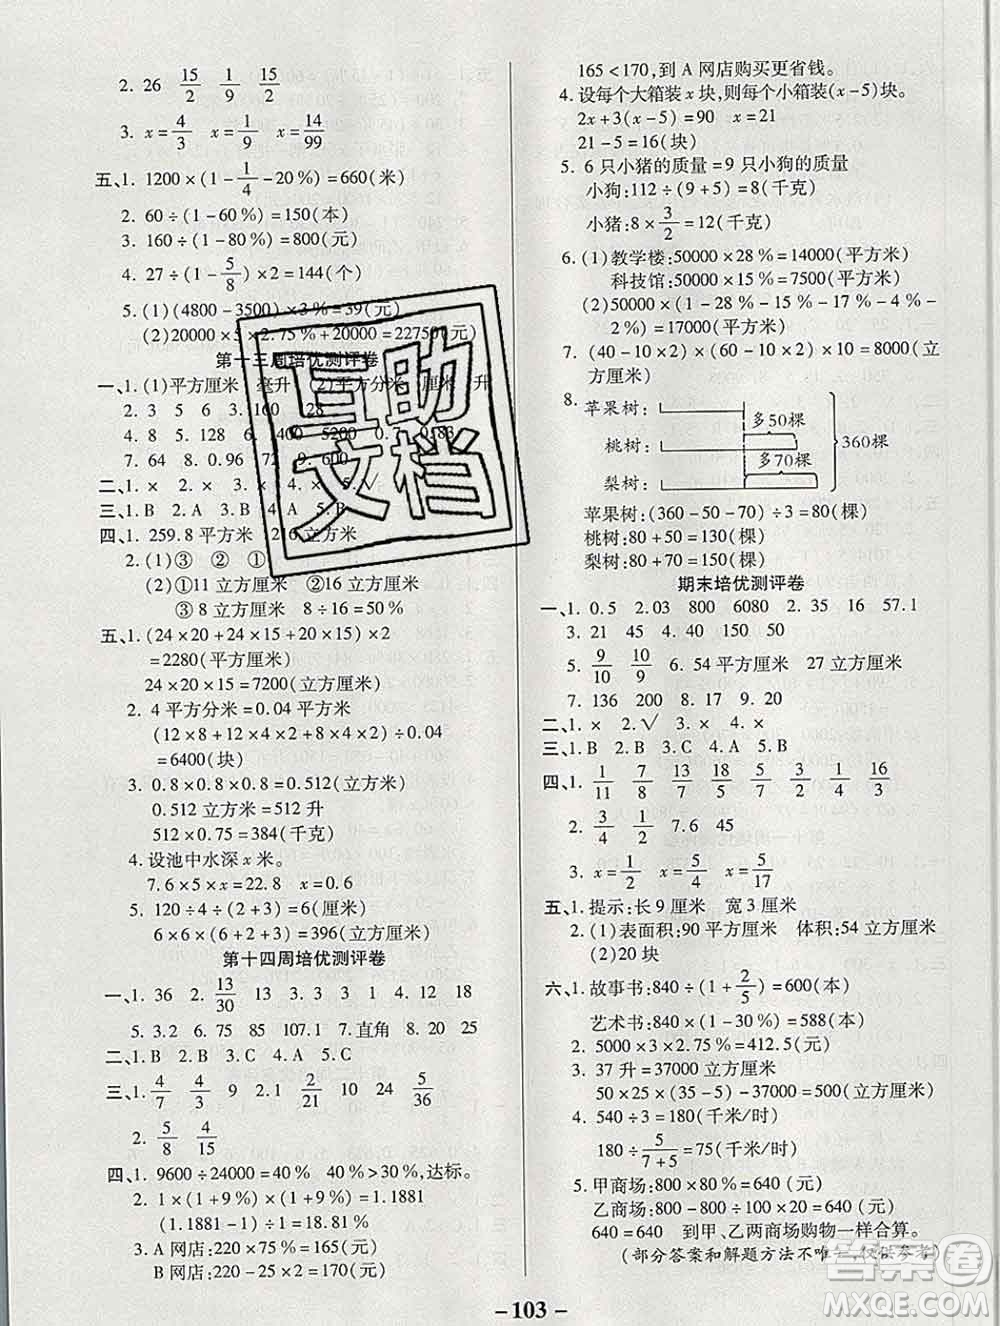 2. 26 15/2 1/9 15/2
3. x=4/3 x=1/9 x=14/99
五、1. 1200×(1-1/4-20%)=660(米)
2. 60÷(1-60%)=150(本)
3. 160÷(1-80%)=800(元)
4. 27÷(1-5/8)×2=144(个)
5. (1)(4800-3500)×3%=39(元)
(2)20000×5×2.75%+20000=22750(元)
第十三周培优测评卷
一、1. (1)平方厘米 毫升 (2)平方分米 厘米 升
2. 8 5 6 3. 160 28
4. 8 5. 128 6. 1400 5200 0.7 0.83
7. 64 8. 0.96 72 9. 600
二、1. × 2. × 3. × 4. × 5. √
三、1. B 2. A 3. C 4. A 5. B
四、1. 259.8 平方厘米 216 立方厘米
2. (1)③ ② ①
(2)①11 立方厘米 ②16 立方厘米
③8 立方厘米 8÷16=50%
五、1. (24×20+24×15+20×15)×2
=2280(平方厘米)
24×20×15=7200(立方厘米)
2. 4 平方分米=0.04 平方米
(12×8+12×4×2+8×4×2)÷0.04
=6400(块)
3. 0.8×0.8×0.8=0.512(立方米)
0.512 立方米=512 升
512×0.75=384(千克)
4. 设池中水深 x 米。
7.6×5×x=22.8 x=0.6
5. 120÷4÷(2+3)=6(厘米)
6×6×(6+2+3)=396(立方厘米)
第十四周培优测评卷
一、1. 36 2. 13/30 13 3. 3 1 4. 12 18
5. 3.2 6. 75 85 107.1 7. 直角 8. 20 25
二、1. B 2. B 3. B 4. C 5. C
三、1. 4/7 4/3 9 2.1 2/21 24 5/36
2. 5/8 4/15
四、1. 9600÷24000=40% 40%>30%,达标。
2. 1×(1+9%)×(1+9%)=1.1881
(1.1881-1)÷1=18.81%
3. A 网店:220×75%=165(元)
B 网店:220-50=170(元)
165<170,到 A 网店购买更省钱。
4. 设每个大箱装 x 块,则每个小箱装(x-5)块。
2x+3(x-5)=90 x=21
21-5=16(块)
5. 6 只小猪的质量=9 只小狗的质量
小狗:112÷(9+5)=8(千克)
小猪:8×3/2=12(千克)
6. (1)教学楼:50000×28%=14000(平方米)
科技馆:50000×15%=7500(平方米)
(2)50000×(1-28%-15%-21%-
2%)=17000(平方米)
7. (40-10×2)×(60-10×2)×10=8000(立
方厘米)
8. 苹果树:
多50棵
桃树:
360棵
多70棵
梨树:
苹果树:(360-50-70)÷3=80(棵)
桃树:80+50=130(棵)
梨树:80+70=150(棵)
期末培优测评卷
一、1. 0.5 2.03 800 6080 2. 35 16 57.1
3. 21 45 4. 200 150 50
5. 9/10 10/9 6. 54 平方厘米 27 立方厘米
7. 136 200 8. 17 9. 20
二、1. × 2. √ 3. × 4. × 5. ×
三、1. B 2. B 3. C 4. A 5. B
四、1. 1/11 7/8 13/7 5/7 4/3 1/2 16/3
2. 3/4 1/2 7.6 45
3. x=1/2 x=5/8 x=5/17
五、1. 提示:长 9 厘米 宽 3 厘米
2. (1)表面积:90 平方厘米 体积:54 立方厘米
(2)20 块
六、1. 故事书:840÷(1+2/5)=600(本)
艺术书:840×(1-30%)=588(本)
2. 5000×3×2.75%=412.5(元)
3. 37 升=37000 立方厘米
50×25×(35-5)-37000=500(立方厘米)
4. 540÷3=180(千米/时)
180÷5/(7+5)=75(千米/时)
5. 甲商场:800×80%=640(元)
乙商场:800-800÷100×20=640(元)
640=640 到甲、乙两商场购物一样合算。
(部分答案和解题方法不唯一,仅供参考)
互助
文档
答案圈
MXQE.COM
- 103 -